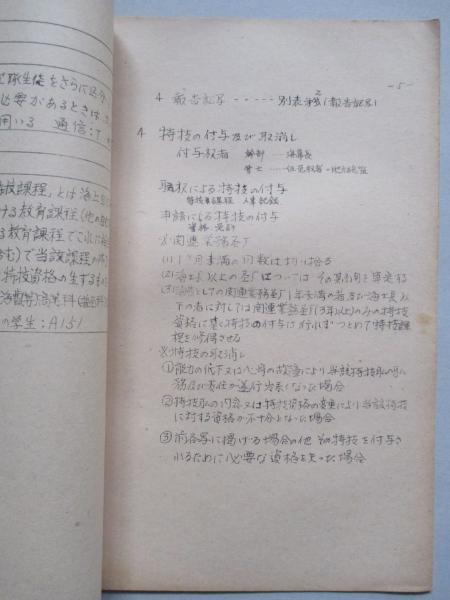 球生徒をさらに区分
必要があるときは
用いる 通信:T
特技課程」とは海上
ける教育課程(他の
る教育課程でこれに
む)で当該課程の
特技資格の生ずるもの
高等科
の学生:A151
-5-
4 報告記号 ----- 別表第2(報告記号)
4 特技の付与及び取消し
付与权者 幹部 --- 海幕長
曹士 ---
職权による特技の付与
特技課程 人事記録
申請による特技の付与
資格 免許
※関連業務歴
(1)1ヶ月未満の日数は切り捨る
(2)海士長以上の歴については その 期間を算定する
(3)としての関連業務歴1年未満の者及び海士長以
下の者に対しては関連業務歴(3年以上)のみの特技
資格に基く特技の付与は行わずつとめて特技課
程を修得させる
※特技の取消し
①能力の低下又は心身の故障により当該特技职の职
務及び責任が遂行出来なくなった場合
②特技职の内容又は特技資格の変更により当該特技
に対する資格が不十分となった場合
③前各号に掲げる場合の他 その特技を付与さ
れるために必要な資格を失った場合